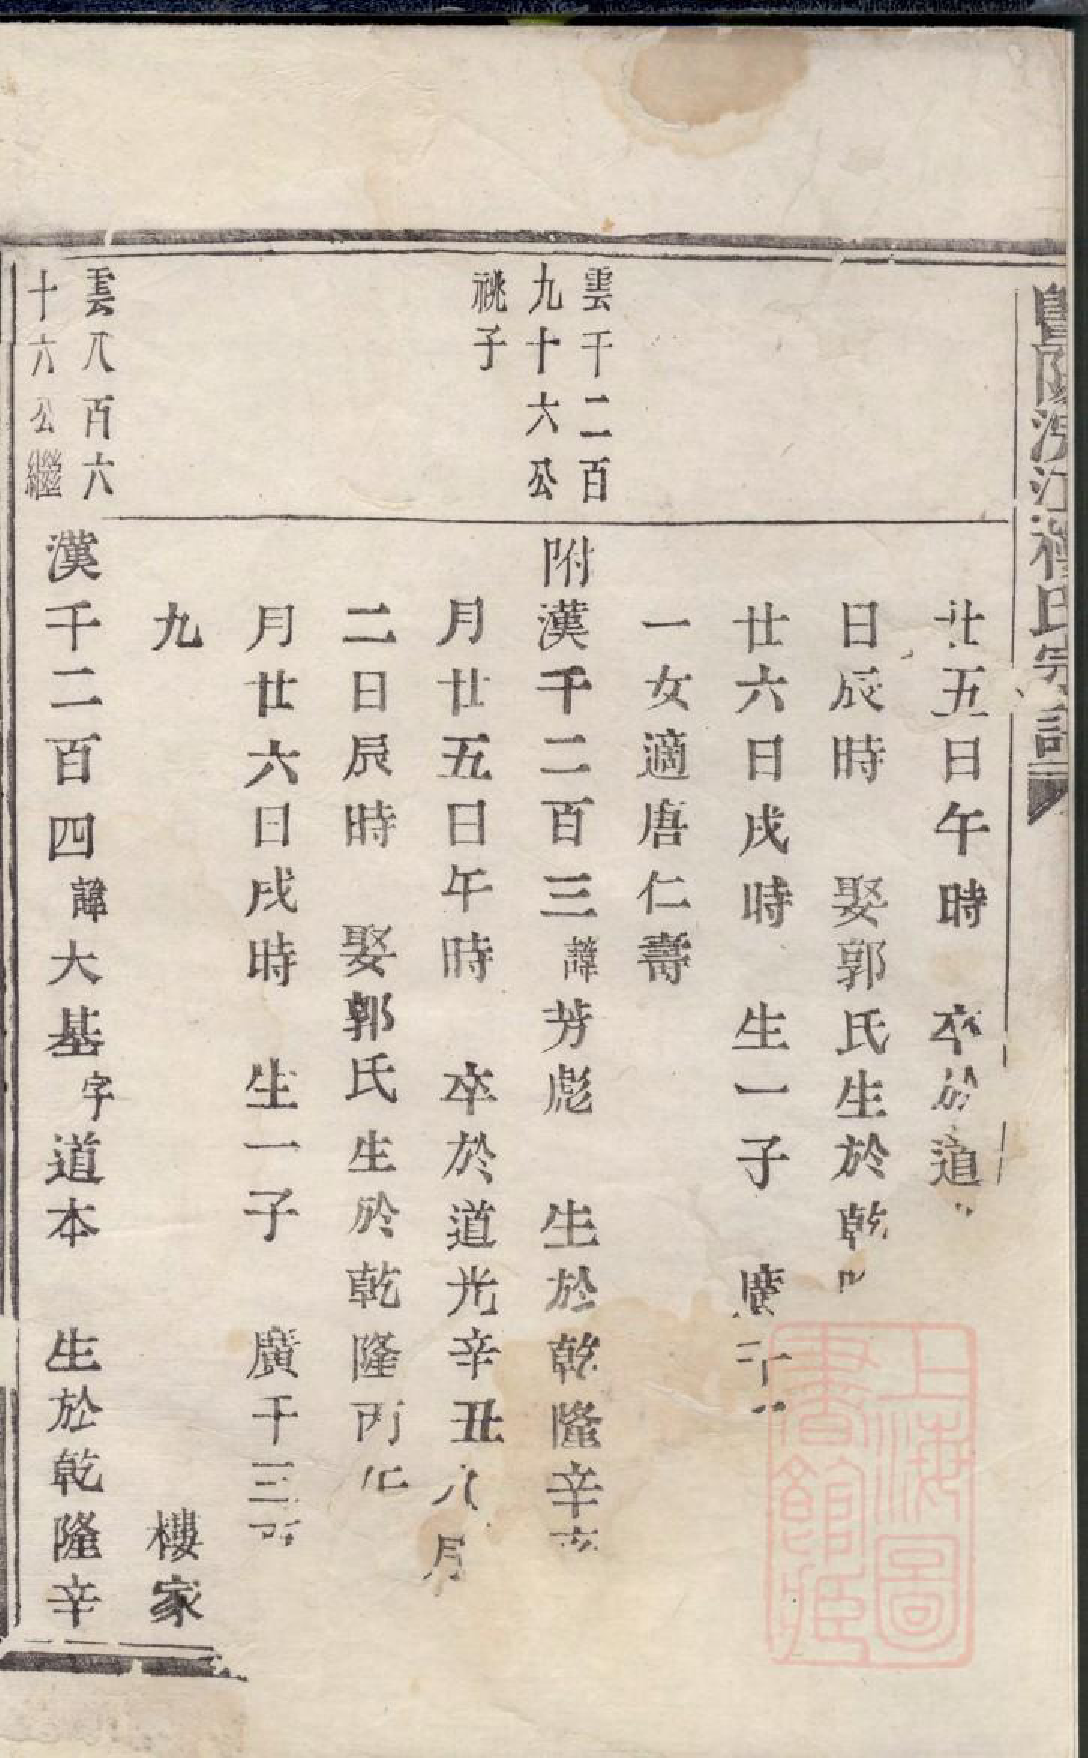 氏宗譜
廿五日午時 卒於道
日辰時 娶郭氏生於乾
廿六日戌時 生一子 廣千
一女適唐仁壽
雲千二百
九十六公
祧子
附漢千二百三諱芳彪 生於乾隆辛亥
月廿五日午時 卒於道光辛丑八月
二日辰時 娶郭氏生於乾隆丙
月廿六日戌時 生一子 廣千三百
九 樓家
雲八百六
十六公繼
漢千二百四諱大基字道本 生於乾隆辛
上海圖
書館藏